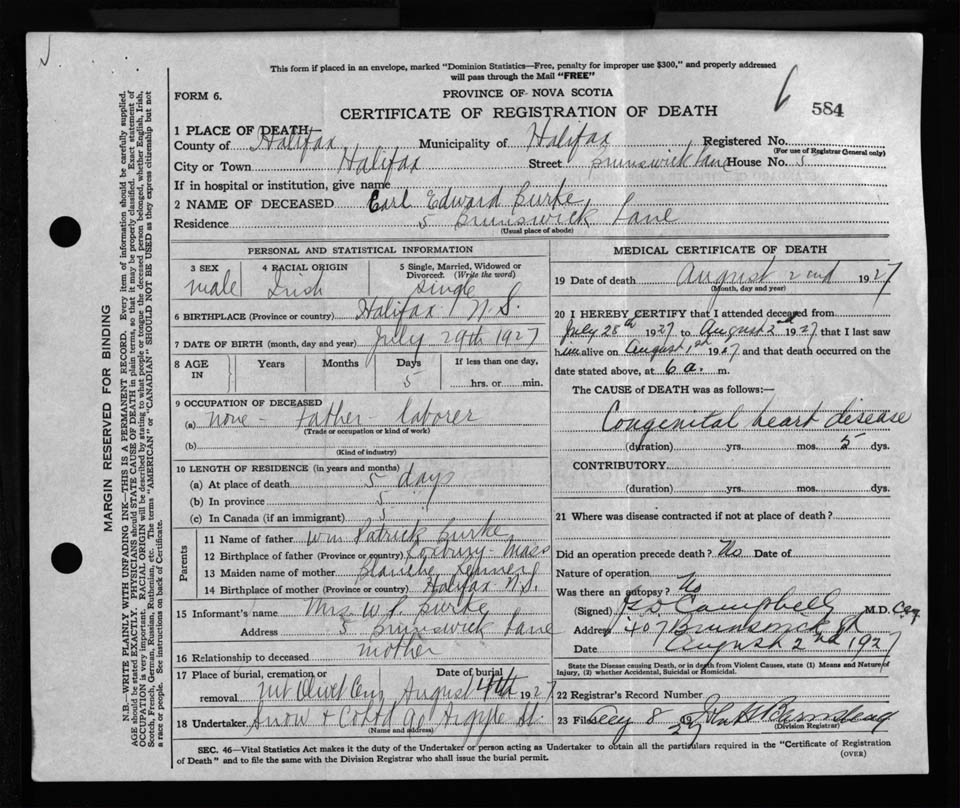 This form if placed in an envelope, marked "Dominion Statistics—Free, penalty for improper use $300," and properly addressed
will pass through the Mail "FREE"
FORM 6.
PROVINCE OF NOVA SCOTIA
CERTIFICATE OF REGISTRATION OF DEATH
584
1 PLACE OF DEATH—
County of Halifax Municipality of Halifax Registered No.
(For use of Registrar General only)
City or Town Halifax Street Brunswick Lane House No. 5
If in hospital or institution, give name
2 NAME OF DECEASED Earl Edward Burke
Residence 5 Brunswick Lane
(Usual place of abode)
PERSONAL AND STATISTICAL INFORMATION
3 SEX 4 RACIAL ORIGIN 5 Single, Married, Widowed or Divorced. (Write the word)
male Irish Single
6 BIRTHPLACE (Province or country) Halifax N.S.
7 DATE OF BIRTH (month, day and year) July 29th 1927
8 AGE IN Years Months Days If less than one day,
5 hrs. or min.
9 OCCUPATION OF DECEASED
(a) none - Father - laborer
(Trade or occupation or kind of work)
(b)
(Kind of industry)
10 LENGTH OF RESIDENCE (in years and months)
(a) At place of death 5 days
(b) In province 5
(c) In Canada (if an immigrant) 5
Parents
11 Name of father Wm Patrick Burke
12 Birthplace of father (Province or country) Roxbury - Mass
13 Maiden name of mother Blanche Kennedy
14 Birthplace of mother (Province or country) Halifax N.S.
15 Informant's name Mrs W P Burke
Address 5 Brunswick Lane
16 Relationship to deceased mother
17 Place of burial, cremation or removal Date of burial
Mt Olivet Cem August 4th 1927
18 Undertaker Snow & Co Ltd 90 Argyle St.
(Name and address)
MEDICAL CERTIFICATE OF DEATH
19 Date of death August 2nd 1927
(Month, day and year)
20 I HEREBY CERTIFY that I attended deceased from
July 28th 1927 to August 2nd 1927 that I last saw
him alive on August 1st 1927 and that death occurred on the
date stated above, at 6 a. m.
The CAUSE of DEATH was as follows:
Congenital heart disease
(duration) yrs. mos. 5 dys.
CONTRIBUTORY
(duration) yrs. mos. dys.
21 Where was disease contracted if not at place of death?
Did an operation precede death? No Date of
Nature of operation
Was there an autopsy? No
(Signed) Campbell M.D.
Address 407 Brunswick St
Date August 2nd 1927
State the Disease causing Death, or in death from Violent Causes, state (1) Means and Nature of
Injury, (2) whether Accidental, Suicidal or Homicidal.
22 Registrar's Record Number
23 Filed 8 27
(Division Registrar)
SEC. 46—Vital Statistics Act makes it the duty of the Undertaker or person acting as Undertaker to obtain all the particulars required in the "Certificate of Registration
of Death" and to file the same with the Division Registrar who shall issue the burial permit.
(OVER)
MARGIN RESERVED FOR BINDING
N.B.—WRITE PLAINLY WITH UNFADING INK—THIS IS A PERMANENT RECORD. Every item of information should be carefully supplied.
AGE should be stated EXACTLY. PHYSICIANS should STATE CAUSE OF DEATH in plain terms, so that it may be properly classified. Exact statement of
OCCUPATION is very important. RACIAL ORIGIN will be described by stating to what people or tongue the deceased person belonged, whether English, Irish,
Scotch, French, German, Russian, Ruthenian, etc. The terms "AMERICAN" or "CANADIAN" SHOULD NOT BE USED as they express citizenship but not
a race or people. See instructions on back of Certificate.